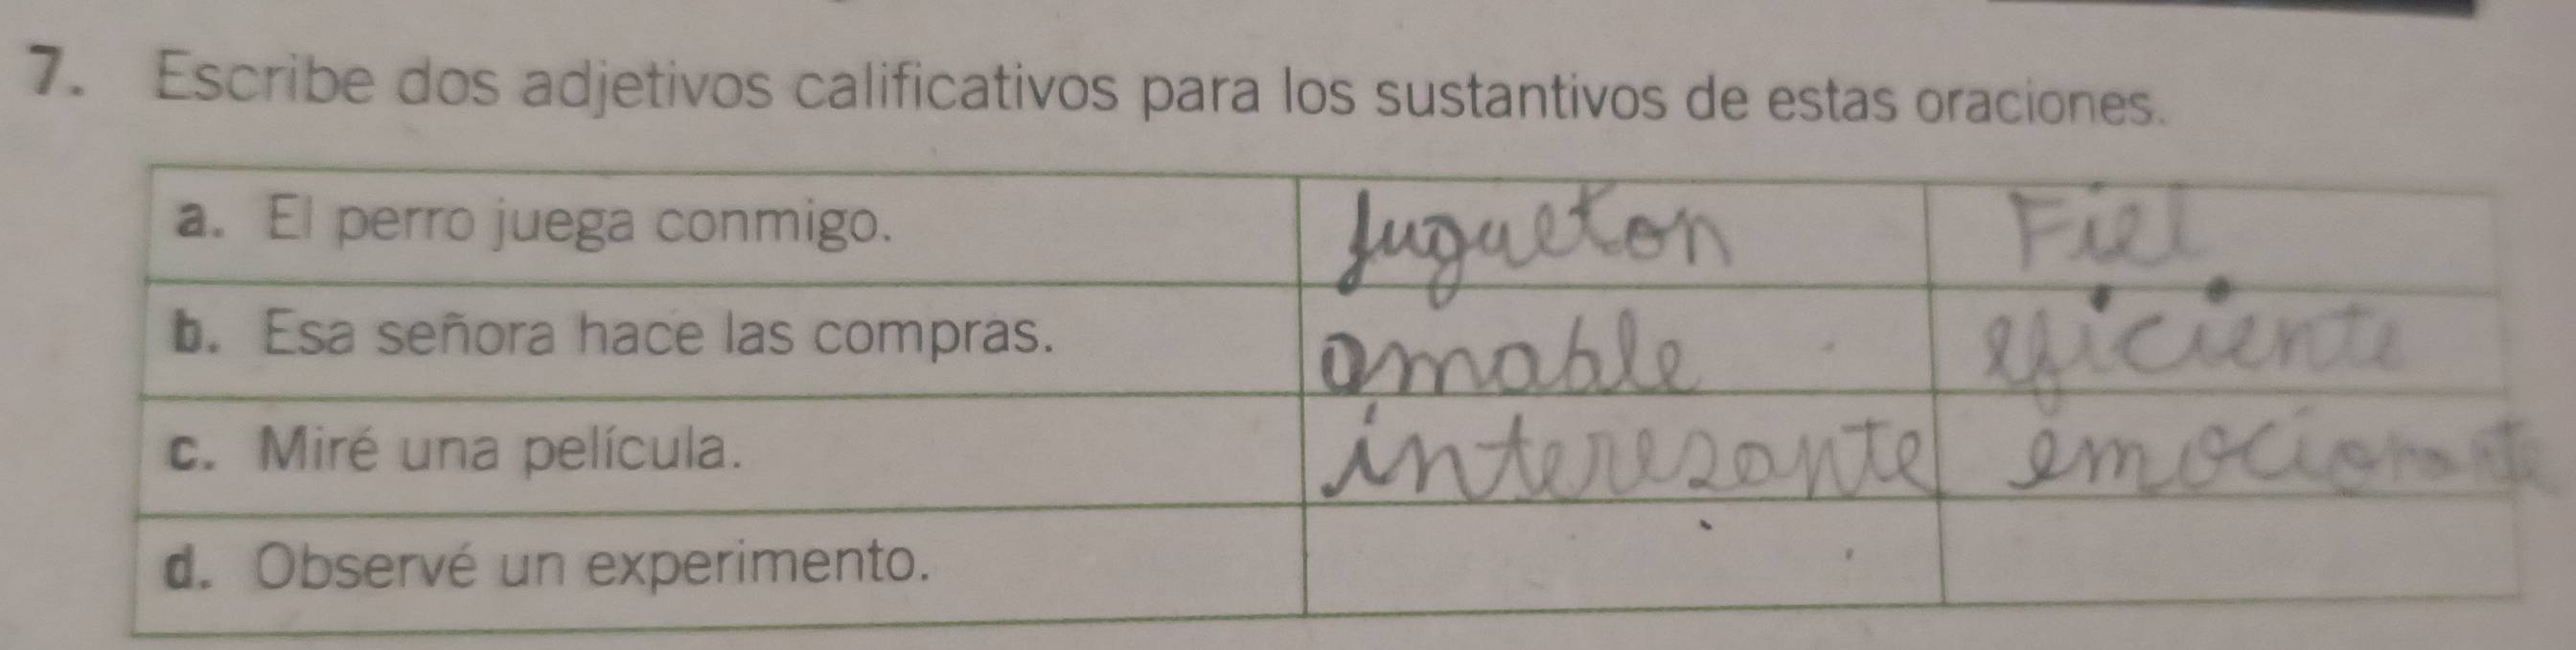 7. Escribe dos adjetivos calificativos para los sustantivos de estas oraciones.
a. El perro juega conmigo. Jugueton Fiel
b. Esa señora hace las compras. amable eficiente
c. Miré una película. interezante emocionante
d. Observé un experimento.